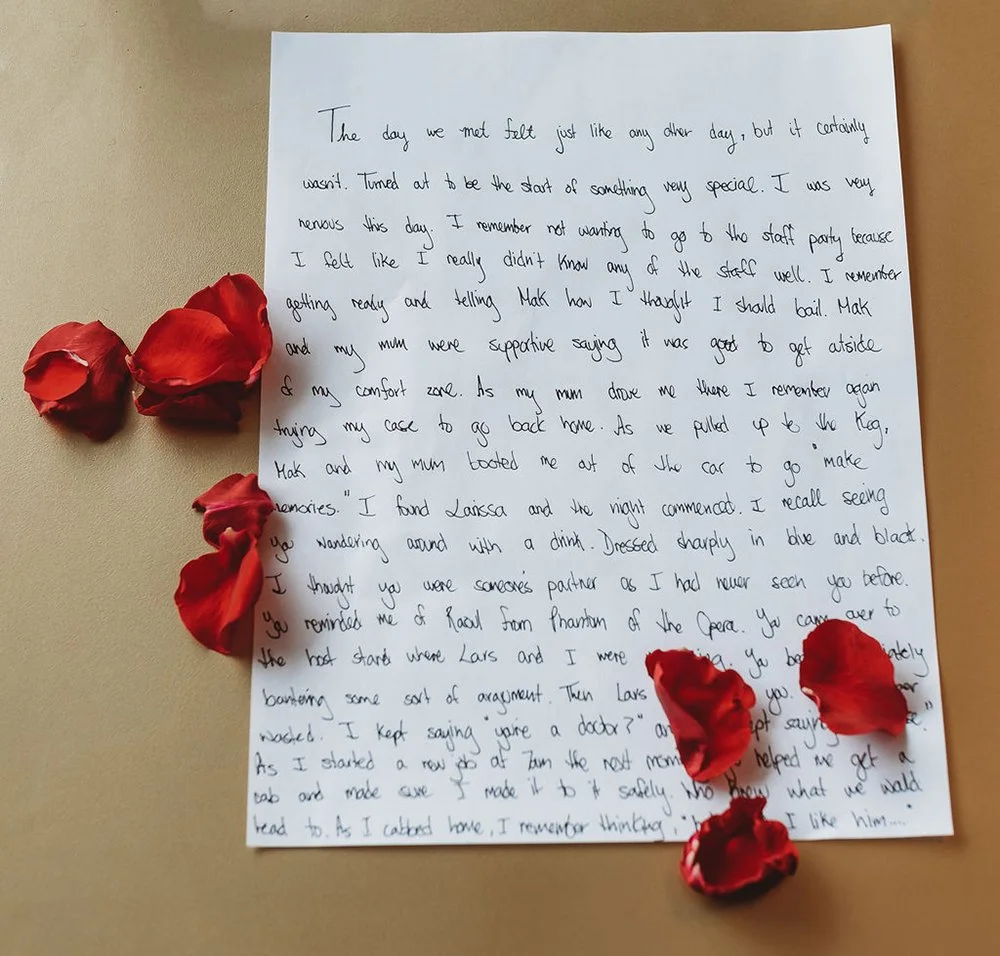 The day we met felt just like any other day, but it certainly
wasn't. Turned out to be the start of something very special. I was very
nervous this day. I remember not wanting to go to the staff party because
I felt like I really didn't know any of the staff well. I remember
getting ready and telling Mak how I thought I should bail. Mak
and my mum were supportive saying it was good to get outside
of my comfort zone. As my mum drove me there I remember again
trying my case to go back home. As we pulled up to the Keg,
Mak and my mum booted me out of the car to go "make
memories." I found Larissa and the night commenced. I recall seeing
you wandering around with a drink. Dressed sharply in blue and black.
I thought you were someone's partner as I had never seen you before.
You reminded me of Raoul from Phantom of the Opera. You came over to
the host stand where Lars and I were You
bantering some sort of argument. Then Lars you.
wasted. I kept saying "you're a doctor?" saying
As I started a new job at 7am the next helped me get a
cab and made sure I made it to it safely. Who knew what we would
lead to. As I cabbed home, I remember thinking, I like him...."